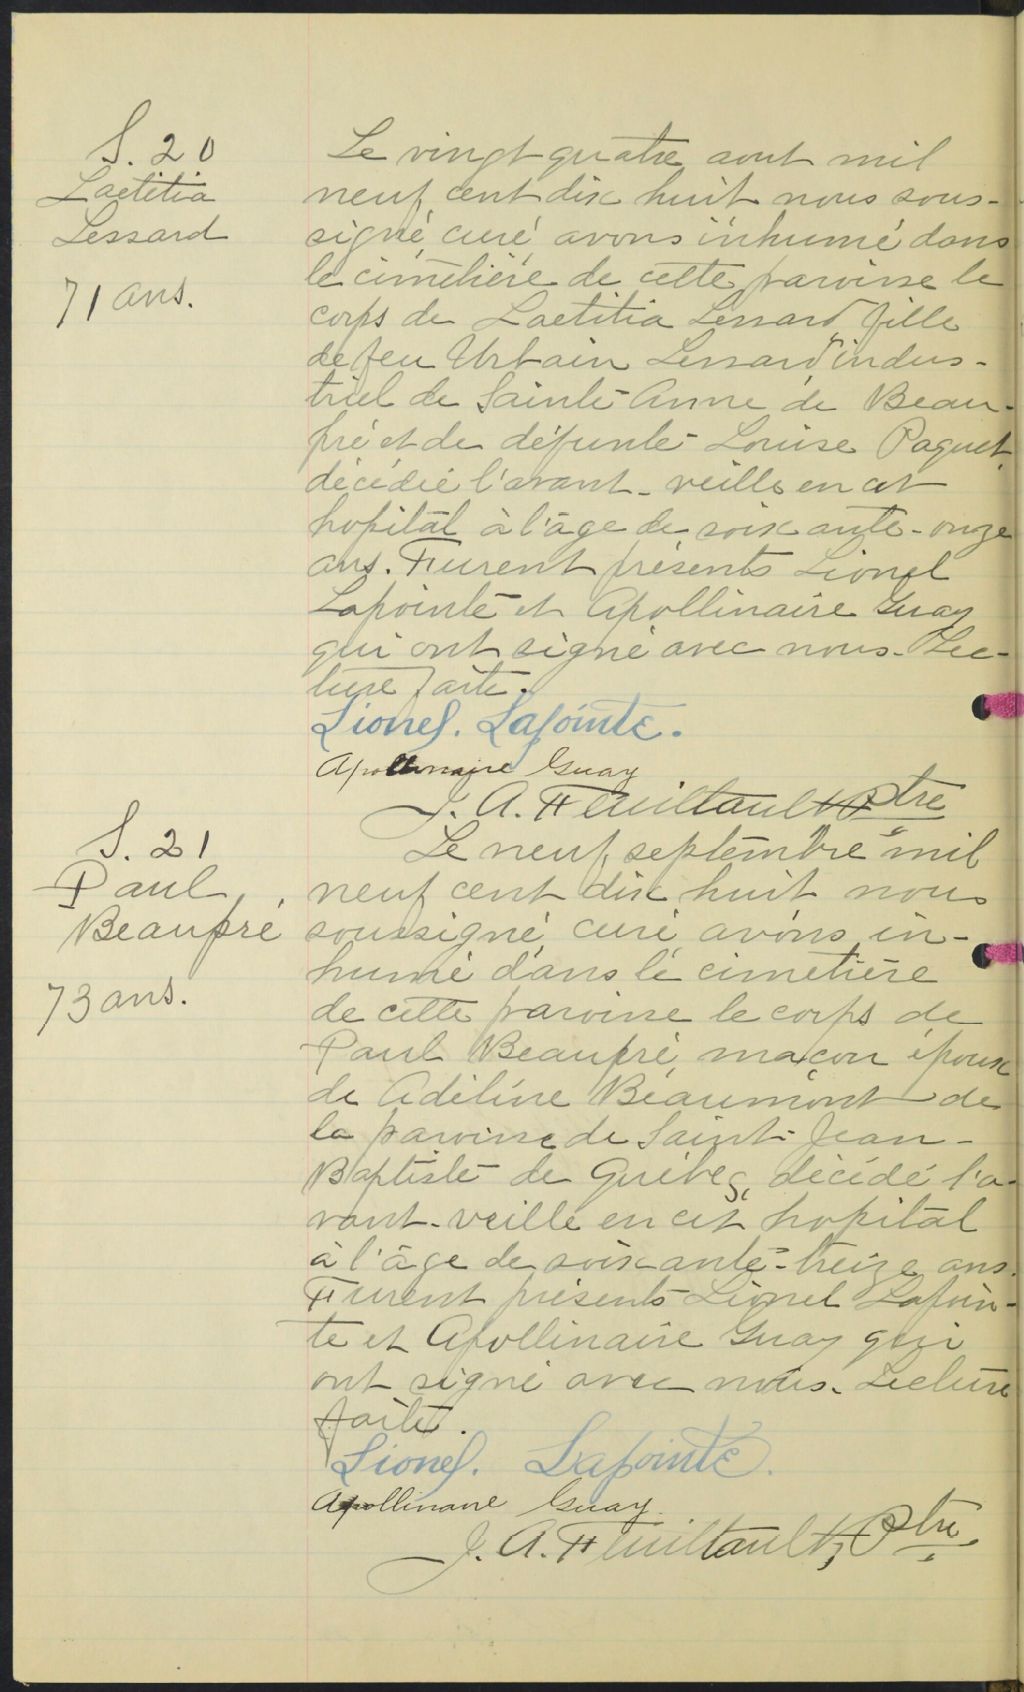 S. 20
Laetitia
Lessard
71 ans.
Le vingt quatre aout mil
neuf cent dix huit nous sous-
signé, curé avons inhumé dans
le cimetière de cette paroisse le
corps de Laetitia Lessard, fille
de feu Urbain Lessard indus-
triel de Sainte-Anne de Beau-
pré et de défunte Louise Paquet
décédée l'avant-veille en cet
hopital à l'âge de soixante-onze
ans. Furent présents Lionel
Lapointe et Apollinaire Guay
qui ont signé avec nous. Lec-
ture faite.
Lionel. Lapointe.
Apollinaire Guay
J. A. Feuiltault Ptre
S. 21
Paul
Beaupré
73 ans.
Le neuf septembre mil
neuf cent dix huit nous
soussigné, curé, avons in-
humé dans le cimetière
de cette paroisse le corps de
Paul Beaupré, maçon époux
de Adéline Beaumont de
la paroisse de Saint-Jean-
Baptiste de Québec, décédé l'a-
vant-veille en cet hopital
à l'âge de soixante-treize ans.
Furent présents Lionel Lapoin-
te et Apollinaire Guay qui
ont signé avec nous. Lecture
faite.
Lionel. Lapointe.
Apollinaire Guay
J. A. Feuiltault, Ptre